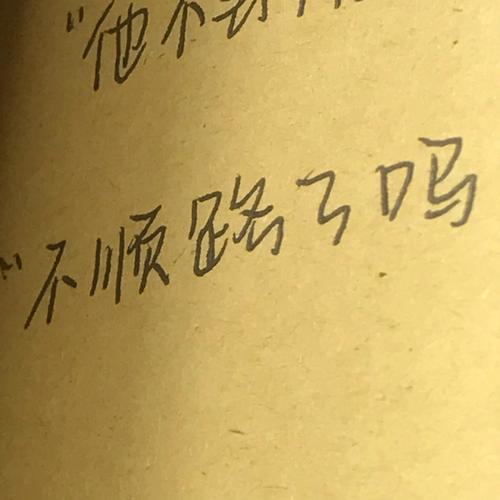 "他不
"不顺路了吗